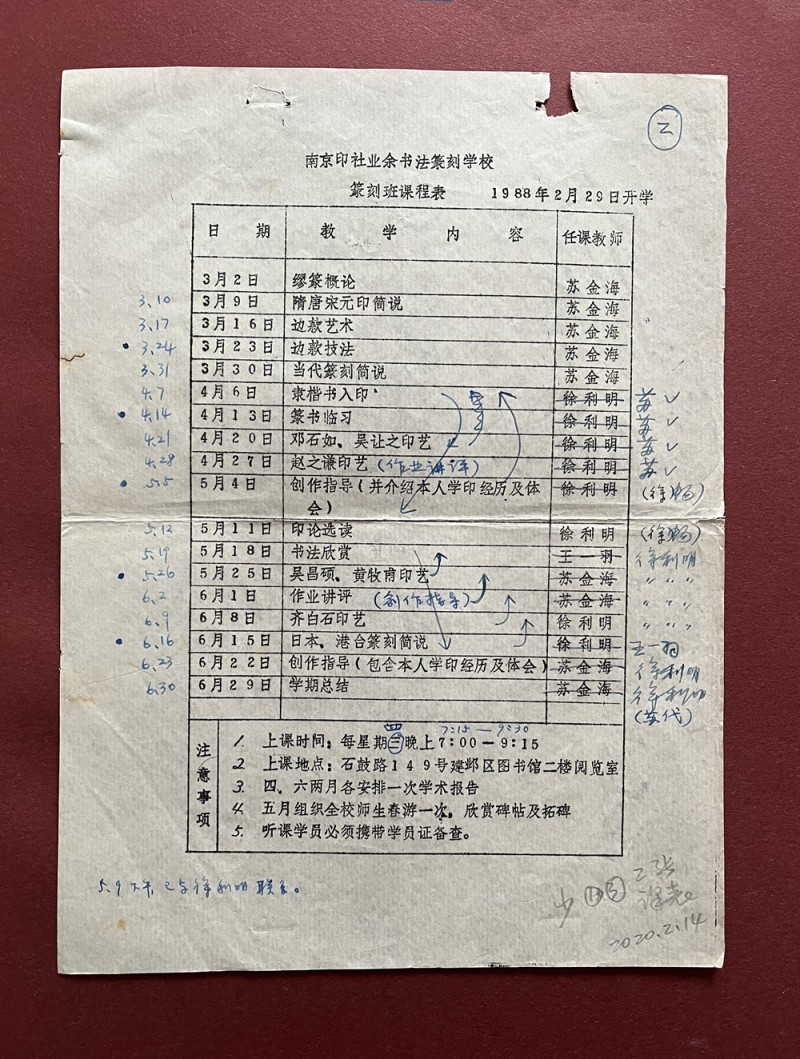 南京印社业余书法篆刻学校
篆刻班课程表 1988年2月29日开学
日期 教学内容 任课教师
3月2日 缪篆概论 苏金海
3.10 3月9日 隋唐宋元印简说 苏金海
3.17 3月16日 边款艺术 苏金海
3.24 3月23日 边款技法 苏金海
3.31 3月30日 当代篆刻简说 苏金海
4.7 4月6日 隶楷书入印 徐利明 苏 ✓
4.14 4月13日 篆书临习 徐利明 苏 ✓
4.21 4月20日 邓石如、吴让之印艺 徐利明 苏 ✓
4.28 4月27日 赵之谦印艺 (作业讲评) 徐利明 苏 ✓
5.5 5月4日 创作指导(并介绍本人学印经历及体 徐利明
会)
5.12 5月11日 印论选读 徐利明
5.19 5月18日 书法欣赏 王一羽 徐利明
5.26 5月25日 吴昌硕、黄牧甫印艺 苏金海 〃 〃 〃
6.2 6月1日 作业讲评 (创作指导) 苏金海 〃 〃 〃
6.9 6月8日 齐白石印艺 徐利明 〃 〃 〃
6.16 6月15日 日本、港台篆刻简说 徐利明 王一羽
6.23 6月22日 创作指导(包含本人学印经历及体会) 苏金海 徐利明
6.30 6月29日 学期总结 苏金海 徐利明
(苏代)
注意事项
四 7:15—9:30
1. 上课时间:每星期三晚上7:00—9:15
2. 上课地点:石鼓路149号建邺区图书馆二楼阅览室
3. 四、六两月各安排一次学术报告
4. 五月组织全校师生春游一次,欣赏碑帖及拓碑
5. 听课学员必须携带学员证备查。
5.9下午,已与徐利明联系。
2020.2.14